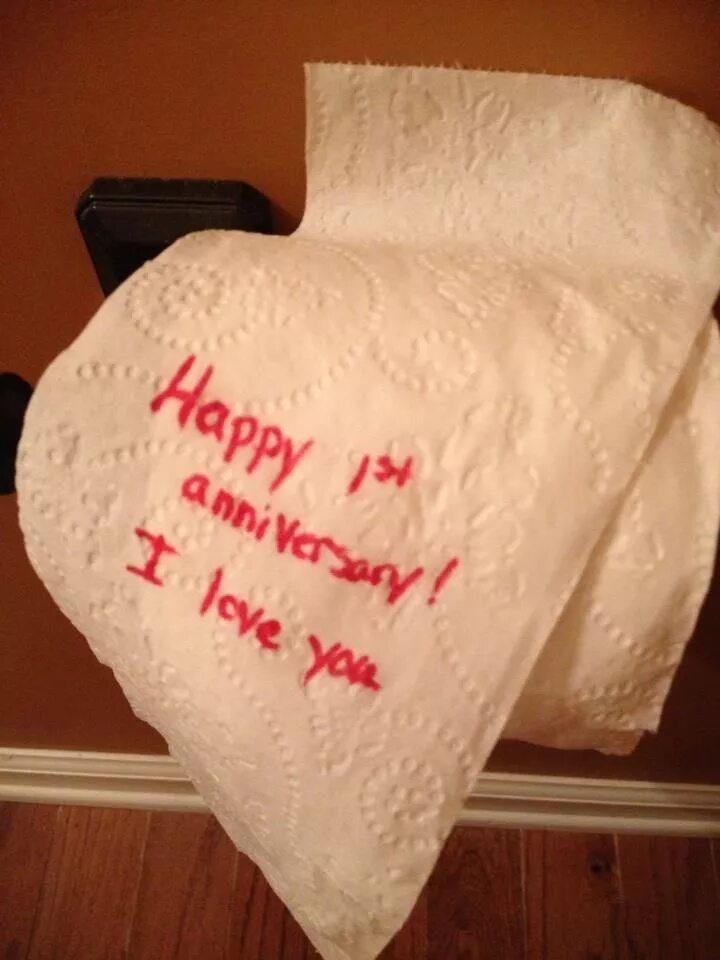 Happy 1st
anniversary!
I love you